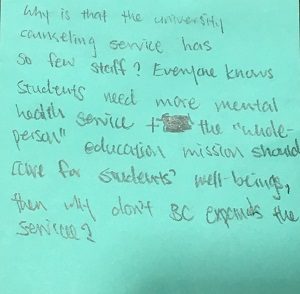 Why is that the university
counseling service has
so few staff? Everyone knows
students need more mental
health service + the "whole-
person" education mission should
care for students' well-beings,
then why don't BC expends the
service?